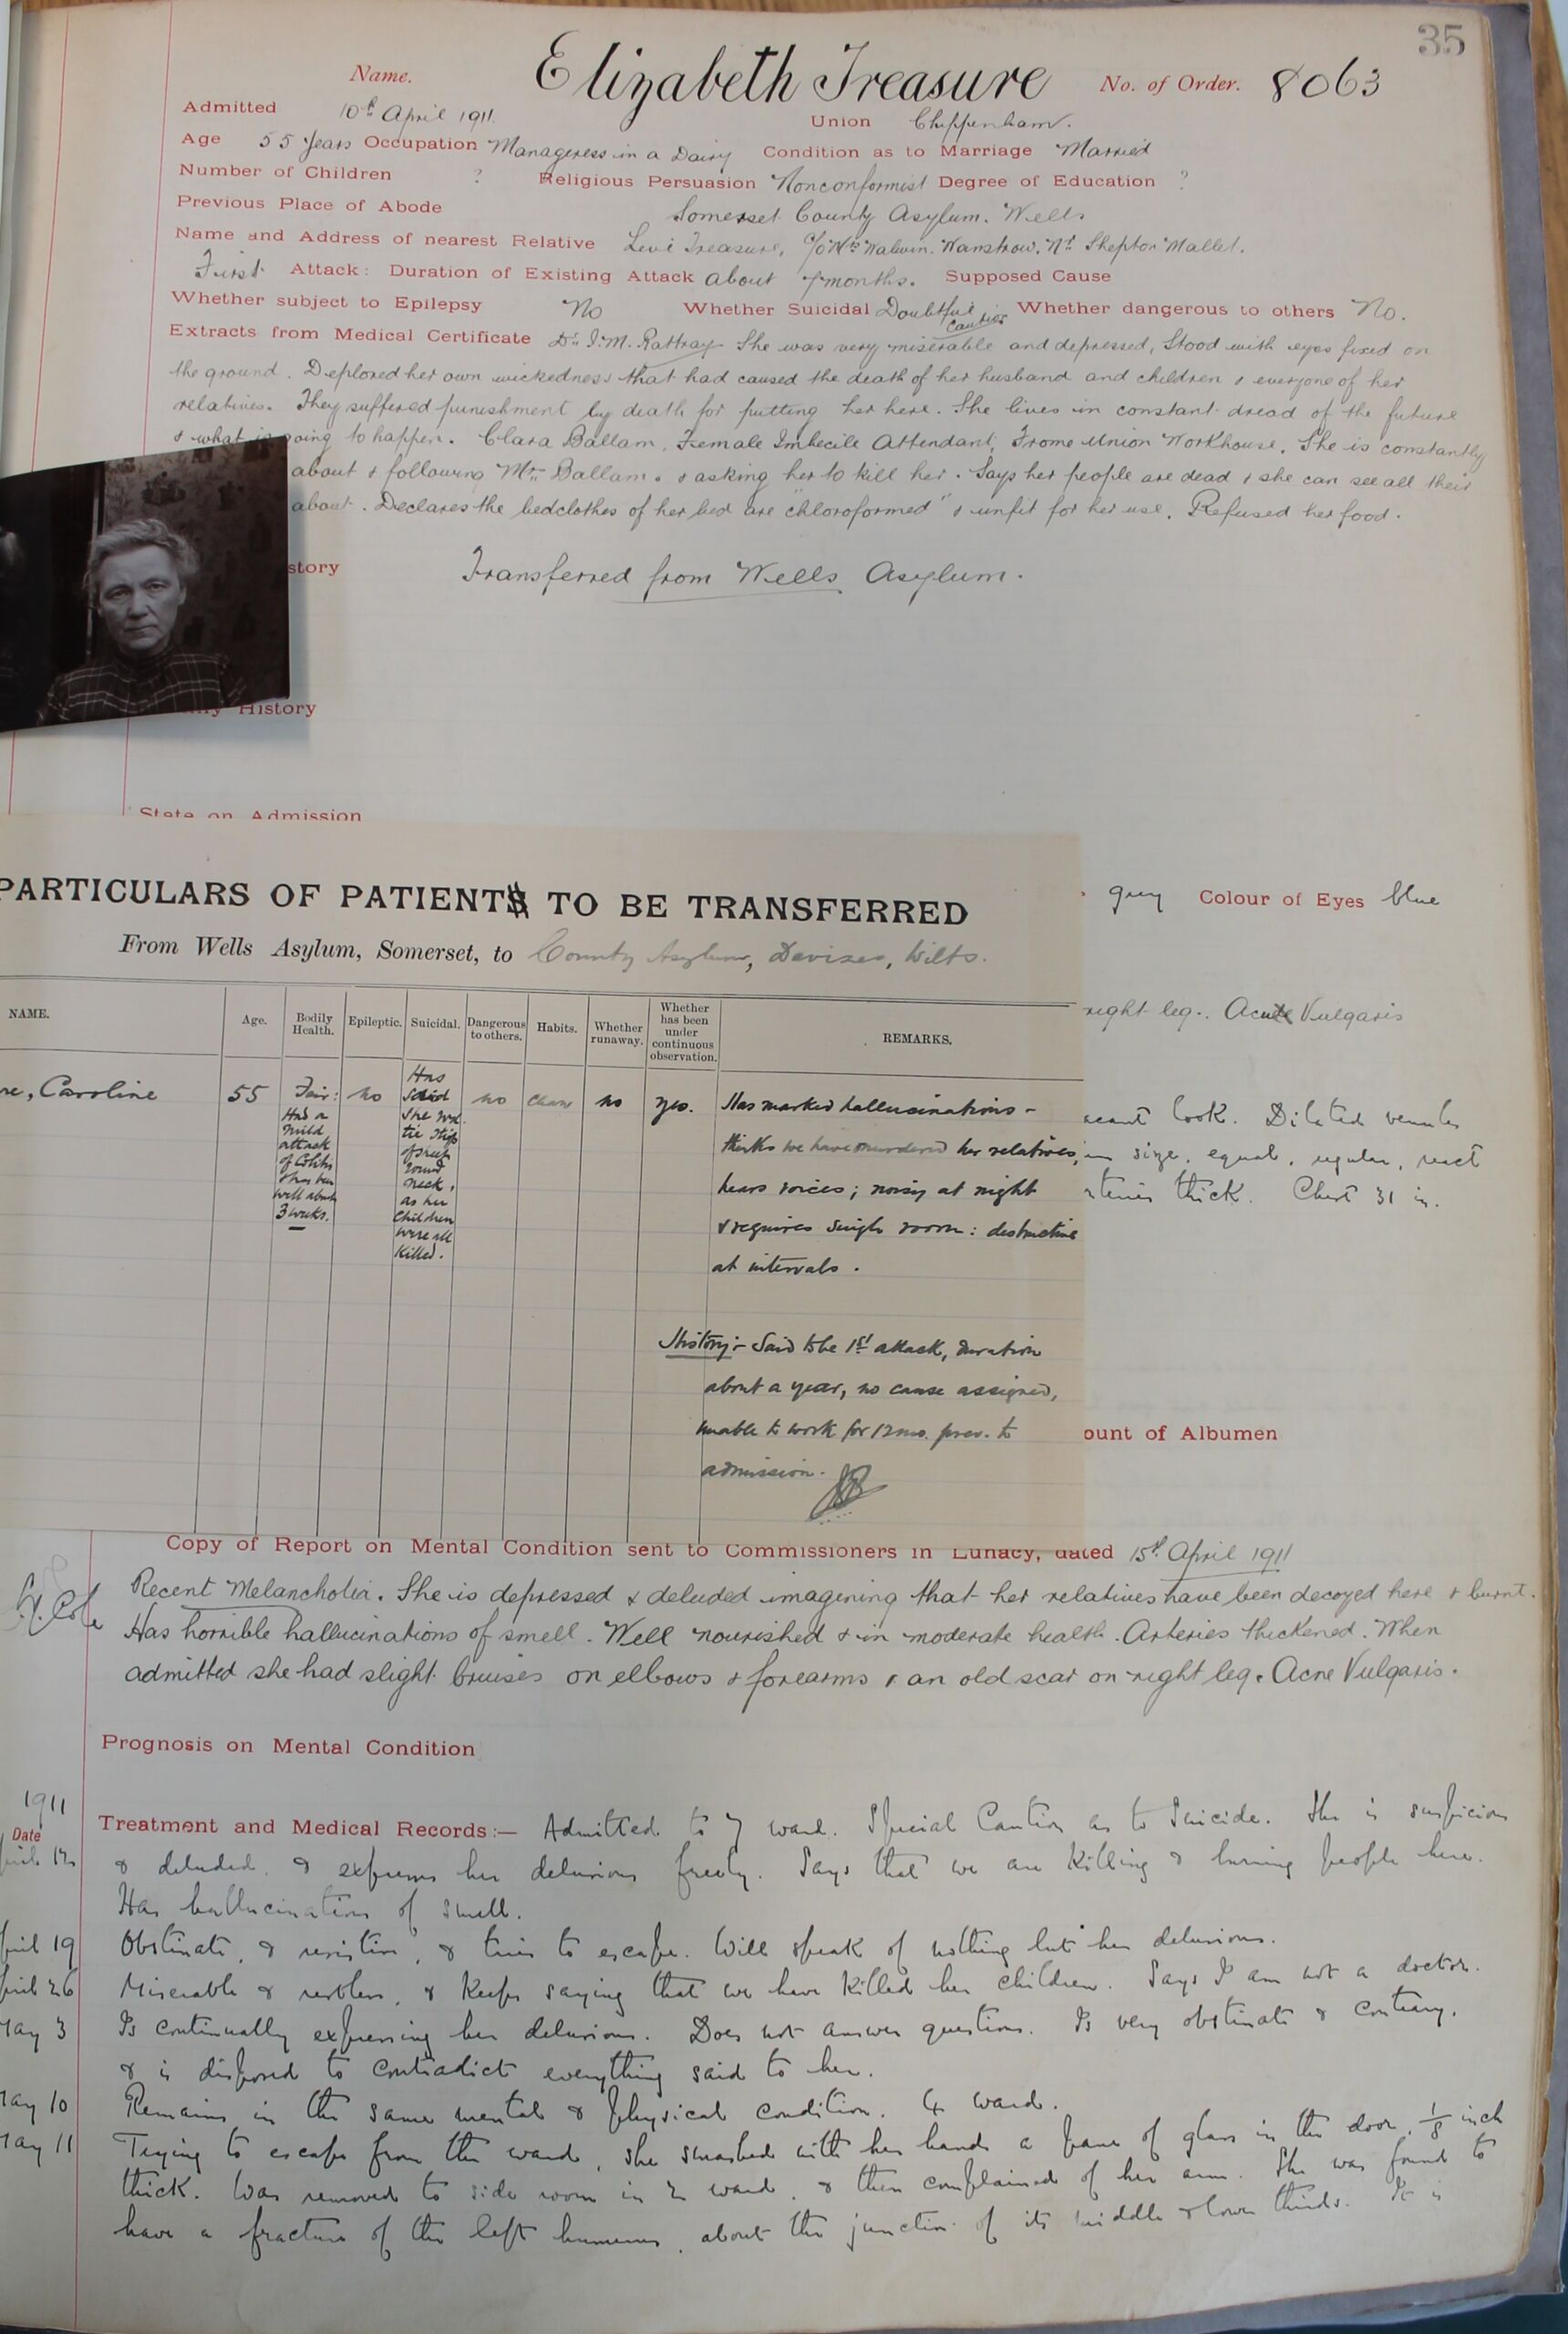 35
Name. Elizabeth Treasure No. of Order. 8063
Admitted 10th April 1911. Union Chippenham.
Age 55 Years Occupation Manageress in a Dairy Condition as to Marriage Married
Number of Children ? Religious Persuasion Nonconformist Degree of Education ?
Previous Place of Abode Somerset County Asylum. Wells
Name and Address of nearest Relative Levi Treasure, c/o Walwin. Wanstrow. Nr Shepton Mallet.
First Attack: Duration of Existing Attack about months. Supposed Cause
Whether subject to Epilepsy No Whether Suicidal Doubtful Whether dangerous to others No.
Caution
Extracts from Medical Certificate Dr. I. M. Rattray She was very miserable and depressed, Stood with eyes fixed on
the ground. Deplored her own wickedness that had caused the death of her husband and children & everyone of her
relatives. They suffered punishment by death for putting her here. She lives in constant dread of the future
& what is going to happen. Clara Ballam, Female Imbecile Attendant, Frome Union Workhouse. She is constantly
about & following Mrs Ballam. & asking her to kill her. Says her people are dead & she can see all their
about. Declares the bedclothes of her bed are "chloroformed" & unfit for her use. Refused her food.
story Transferred from Wells Asylum.
History
State on Admission
PARTICULARS OF PATIENTS TO BE TRANSFERRED
grey Colour of Eyes blue
From Wells Asylum, Somerset, to County Asylum, Devizes, Wilts.
right leg. Acne Vulgaris
NAME. Age. Bodily Health. Epileptic. Suicidal. Dangerous to others. Habits. Whether runaway. Whether has been under continuous observation. REMARKS.
re, Caroline
55
Fair:
Has a
mild
attack
of Colitis
& has been
well about
3 weeks.
no
Has
said
she wd.
tie strip
of sheet
round
neck,
as her
children
were all
killed.
no
clean
no
yes.
Has marked hallucinations -
thinks we have murdered her relatives,
hears voices; noisy at night
& requires single room: destructive
at intervals.
History:- Said to be 1st attack, duration
about a year, no cause assigned,
unable to work for 12 mo. prev. to
admission.
vacant look. Dilated venules
in size, equal, regular, react
arteries thick. Chest 31 in.
ount of Albumen
Copy of Report on Mental Condition sent to Commissioners in Lunacy, dated 15th April 1911
Cole Recent Melancholia. She is depressed & deluded imagining that her relatives have been decoyed here & burnt.
Has horrible hallucinations of smell. Well nourished & in moderate health. Arteries thickened. When
admitted she had slight bruises on elbows & forearms & an old scar on right leg. Acne Vulgaris.
Prognosis on Mental Condition
1911
Date
Treatment and Medical Records:— Admitted to 7 ward. Special Caution as to Suicide. She is suspicious
April 12 & deluded, & expresses her delusions freely. Says that we are killing & burning people here.
Has hallucinations of smell.
April 19 Obstinate, & resistive, & tries to escape. Will speak of nothing but her delusions.
April 26 Miserable & restless, & keeps saying that we have killed her children. Says I am not a doctor.
May 3 Is continually expressing her delusions. Does not answer questions. Is very obstinate & contrary.
& is disposed to contradict everything said to her.
May 10 Remains in the same mental & physical condition. 4 ward.
May 11 Trying to escape from the ward, she smashed with her hands a pane of glass in the door, 1/8 inch
thick. Was removed to side room in 2 ward, & then complained of her arm. She was found to
have a fracture of the left humerus, about the junction of its middle & lower thirds. It is